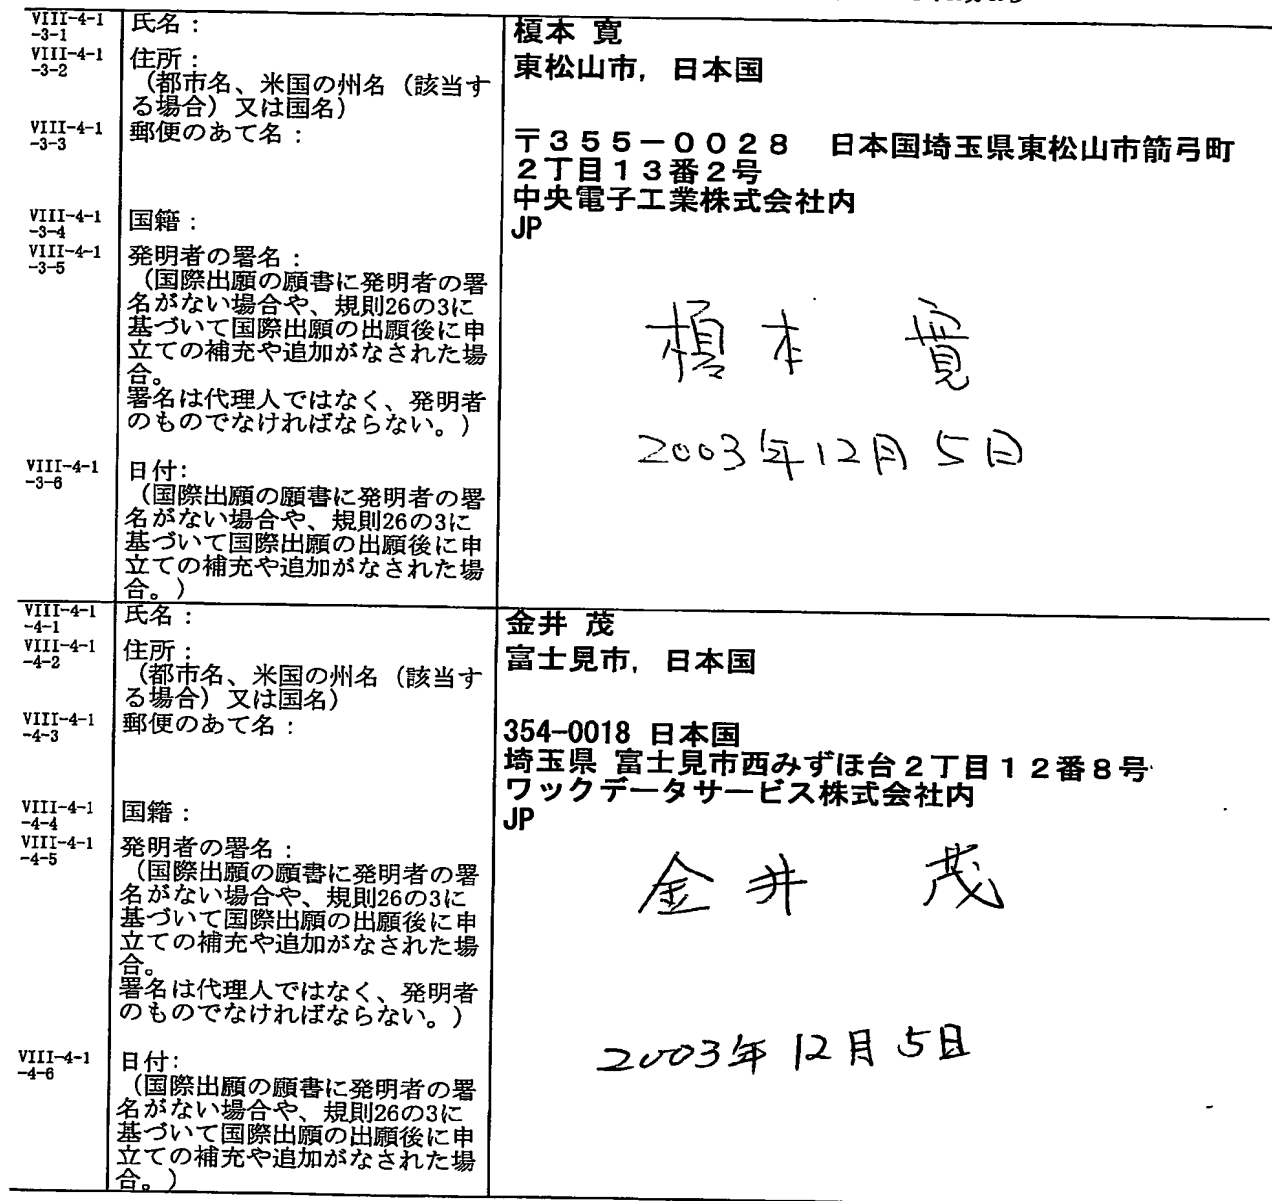 VIII-4-1
-3-1
氏名：
榎本 寛
VIII-4-1
-3-2
住所：
（都市名、米国の州名（該当す
る場合）又は国名）
東松山市, 日本国
VIII-4-1
-3-3
郵便のあて名：
〒３５５－００２８ 日本国埼玉県東松山市箭弓町
２丁目１３番２号
中央電子工業株式会社内
VIII-4-1
-3-4
国籍：
JP
VIII-4-1
-3-5
発明者の署名：
（国際出願の願書に発明者の署
名がない場合や、規則26の3に
基づいて国際出願の出願後に申
立ての補充や追加がなされた場
合。
署名は代理人ではなく、発明者
のものでなければならない。）
榎本 寛
VIII-4-1
-3-6
日付:
（国際出願の願書に発明者の署
名がない場合や、規則26の3に
基づいて国際出願の出願後に申
立ての補充や追加がなされた場
合。）
2003年12月5日
VIII-4-1
-4-1
氏名：
金井 茂
VIII-4-1
-4-2
住所：
（都市名、米国の州名（該当す
る場合）又は国名）
富士見市, 日本国
VIII-4-1
-4-3
郵便のあて名：
354-0018 日本国
埼玉県 富士見市西みずほ台２丁目１２番８号
ワックデータサービス株式会社内
VIII-4-1
-4-4
国籍：
JP
VIII-4-1
-4-5
発明者の署名：
（国際出願の願書に発明者の署
名がない場合や、規則26の3に
基づいて国際出願の出願後に申
立ての補充や追加がなされた場
合。
署名は代理人ではなく、発明者
のものでなければならない。）
金井 茂
VIII-4-1
-4-6
日付:
（国際出願の願書に発明者の署
名がない場合や、規則26の3に
基づいて国際出願の出願後に申
立ての補充や追加がなされた場
合。）
2003年12月5日